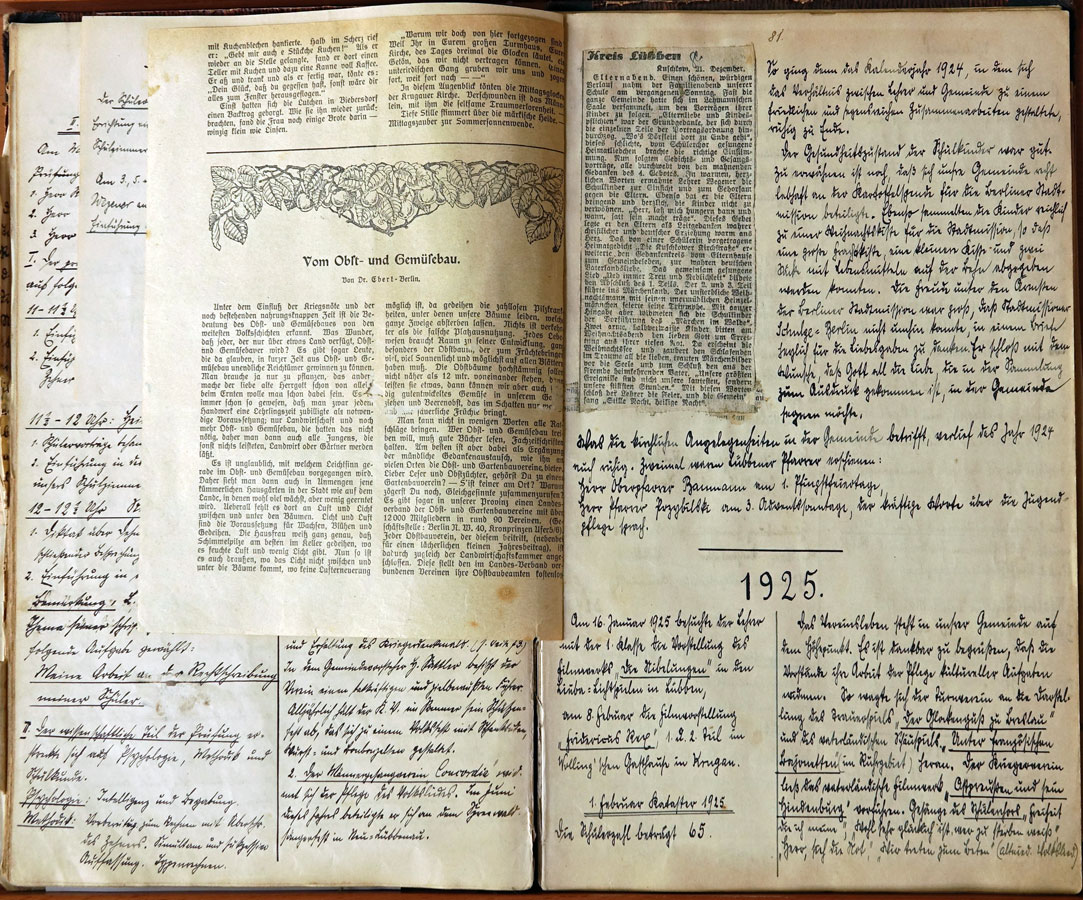 mit Kuchenblechen hantierte. Halb im Scherz rief
er: „Gebt mir auch a Stückche Kuchen!" Als er
wieder an die Stelle gelangte, fand er dort einen
Teller mit Kuchen und dazu eine Kanne voll Kaffee.
Er aß und trank und als er fertig war, tönte es:
„Dein Glück, daß du gegessen hast, sonst wäre dir
alles zum Fenster herausgeflogen."
Einst hatten sich die Lutchen in Siebersdorf
einen Backtrog geborgt. Wie sie ihn wieder zurück-
brachten, fand die Frau noch einige Brote darin —
winzig klein wie Linsen.
„Warum wir doch von hier fortgezogen sind
Weil Ihr in Eurem großen Turmhaus, Eure
Kirche, des Tages dreimal die Glocken läutet, ein
Getön, das wir nicht vertragen können,
unterirdischen Gang gruben wir uns und zogen
fort, weit fort nach — —"
In diesem Augenblick tönten die Mittagsglocken
der Krugauer Kirche. Verschwunden ist das Männ-
lein, mit ihm die seltsame Traumverlorenheit
Diese Stille flimmert über die märkische Heide. —
Mittagszauber zur Sommersonnenwende.
Vom Obst- und Gemüsebau.
Von Dr. Ebert-Berlin.
Unter dem Einfluß der Kriegsnöte und der
noch bestehenden nahrungsknappen Zeit ist die Be-
deutung des Obst- und Gemüsebaues von den
weitesten Volksschichten erkannt. Was Wunder,
daß jeder, der nur über etwas Land verfügt, Obst-
und Gemüsebauer wird? Es gibt sogar Leute,
die da glauben, in kurzer Zeit aus Obst- und Ge-
müsebau unendliche Reichtümer gewinnen zu können.
Man brauche ja nur zu pflanzen, das ander-
mache der liebe alte Herrgott schon von alle
beim Ernten wolle man schon dabei sein. Es ist
immer schon so gewesen, daß man zwar jedem
Handwerk eine Lehrlingszeit zubilligte als notwen-
dige Voraussetzung; nur Landwirtschaft und noch
mehr Obst- und Gemüsebau, die hatten das nicht
nötig, daher man dann auch alle Jungens, die
sonst nichts leisteten, Landwirt oder Gärtner werden
läßt.
Es ist unglaublich, mit welchem Leichtsinn ge-
rade im Obst- und Gemüsebau vorgegangen wird.
Daher sieht man dann auch in Unmengen jene
kümmerlichen Hausgärten in der Stadt wie auf dem
Lande, in denen wohl viel wächst, aber wenig geerntet
wird. Ueberall fehlt es dort an Luft und Licht
zwischen und unter den Bäumen. Licht und Luft
sind die Voraussetzung für Wachsen, Blühen und
Gedeihen. Die Hausfrau weiß ganz genau, daß
Schimmelpilze am besten im Keller gedeihen, wo
es feuchte Luft und wenig Licht gibt. Nun so ist
es auch draußen, wo das Licht nicht zwischen und
unter die Bäume kommt, wo keine Lufterneuerung
möglich ist, da gedeihen die zahllosen Pilzkrank
heiten, unter denen unsere Bäume leiden,
ganze Zweige absterben lassen. Nichts ist verkehr
ter als die falsche Platzausnutzung. Jedes Leb
wesen braucht Raum zu seiner Entwicklung, ganz
besonders der Obstbaum, der zum Früchtbringen
viel, viel Sonnenlicht und möglichst auf allen
haben muß. Die Obstbäume hochstämmig sollen
nicht näher als 12 mtr. voneinander stehen,
leisten sie etwas, dann können wir aber auch
gut entwickeltes Gemüse in unserem Ge
sehen und Beerenobst, das im Schatten nur
säuerliche Früchte bringt.
Man kann nicht in wenigen Worten alle Rat-
schläge bringen. Wer Obst- und Gemüsebau trei-
ben will, muß gute Bücher lesen, Fachzeitschriften
halten. Am besten ist aber dabei als Ergänzung
der mündliche Gedankenaustausch, wie ihn an
vielen Orten die Obst- und Gartenbauvereine bieten
Lieber Leser und Obstzüchter, gehörst Du zu einem
Gartenbauverein? — S'ist keiner am Ort? Warum
zögerst Du noch, Gleichgesinnte zusammenzurufen?
Es gibt sogar in unserer Provinz einen Landes-
verband der Obst- und Gartenbauvereine mit über
12 000 Mitgliedern in rund 90 Vereinen. (Ge-
schäftsstelle: Berlin N. W. 40, Kronprinzen Ufer
Jeder Obstbauverein, der diesem beitritt, (nebenbei
für einen lächerlichen kleinen Jahresbeitrag), ist
dadurch zugleich der Landwirtschaftskammer ange-
schlossen. Diese stellt den im Landes-Verband ver-
bundenen Vereinen ihre Obstbaubeamten kostenlos
Der Schüler
Am 3., 5.
Einführung
1. Herr
2. Herr
3. Herr
auf folge
1. Einfü
2. Einfüh
11½ - 12 Uhr:
1. Schülervorträge
2. Einführung in de
unsers Schulzimme
12 - 12½ Uhr
1. Diktat über
2. Einführung in
Bemerkung:
Thema seiner schrif
folgende Aufgabe gewählt:
Meine Arbeit an der Rechtschreibung
meiner Schüler.
II. Der wissenschaftliche Teil der Prüfung er-
streckte sich auf Psychologie, Methodik und
Schulkunde.
Psychologie: Intelligenz und Begabung.
Methodik: Vorbereitung zum Rechnen mit Überschr.
des Zehners. Simultane und sukzessive
Auffassung. Typenrechnen.
und Erhaltung des Kriegerdenkmals (s. Seite 73).
In dem Gemeindevorsteher H. Kettler besitzt der
Verein einen tatkräftigen und zielbewußten Führer.
Alljährlich hält der K. V. im Sommer sein Schützen-
fest ab, das sich zu einem Volksfest mit
Wurst- und gestaltet.
2. Der Männergesangverein „Concordia" wid-
met sich der Pflege des Volksliedes. Im Juni
dieses Jahres beteiligte er sich an dem Spreewald-
sängerfest in Neu-Lübbenau.
81.
Kreis Lübben
Kuschkow, 21. Dezember.
Elternabend. Einen schönen, würdigen
Verlauf nahm der Familienabend unserer
Schule am vergangenen Sonntag. Fast die
ganze Gemeinde hatte sich im Lahmannschen
Saale versammelt, um den Vorträgen ihrer
Kinder zu folgen. „Elternliebe und Kindes-
pflichten" war der Grundgedanke, der sich durch
die einzelnen Teile der Vortragsordnung hin-
durchzog. „Wo's Dörflein dort zu Ende geht",
dieses schlichte, vom Schülerchor gesungene
Heimatliedchen brachte die richtige Einstim-
mung. Nun folgten Gedichts- und Gesangs-
vorträge, alle durchwebt von den mahnenden
Gedanken des 4. Gebotes. In warmen, herz-
lichen Worten ermahnte Lehrer Wegener die
Schulkinder zur Einsicht und zum Gehorsam
gegen die Eltern. Ebenso bat er die Eltern
dringend und herzlich, die Kinder nicht zu
verwöhnen. „Herr, laß mich hungern dann und
wann, satt sein macht träge". Dieses Gebet
legte er den Eltern als Leitgedanken wahrer
christlicher und deutscher Erziehung warm ans
Herz. Das von einer Schülerin vorgetragene
Heimatgedicht „Die Kuschkower Kirchstraße" er-
weiterte den Gedankenkreis vom Elternhause
zum Gemeindeleben, zur wahren deutschen
Vaterlandsliebe. Das gemeinsam gesungene
Lied „Ueb immer Treu und Redlichkeit" bildete
den Abschluß des 1. Teils. Der 2. und 3. Teil
führte ins Märchenland. Der unsterbliche Weih-
nachtsmann mit seinen wunderlichen Heinzel-
männchen feierte seine Triumphe. Mit ganzer
Hingabe aber widmeten sich die Schulkinder
der Vorführung des „Märchen im Walde".
Zwei arme, halbverwaiste Kinder bitten am
Weihnachtsabend den lieben Gott um Errettung
aus ihrer tiefen Not. Da erscheint die
Weihnachtsfee und zaubert den Schlafenden
im Traume all die lieben, trauten Märchenbilder
vor die Seele und zum Schluß den aus der
Fremde heimkehrenden Vater. „Unsere größten
Ereignisse sind nicht unsere lautesten, sondern
unsere stillsten Stunden." Mit diesen Worten
schloß der Lehrer die Feier, und die Gemeinde
sang „Stille Nacht, heilige Nacht".
So ging denn das Kalenderjahr 1924, in dem sich
das Verhältnis zwischen Lehrer und Gemeinde zu einem
friedlichen und segensreichen Zusammenarbeiten gestaltete,
ruhig zu Ende.
Der Gesundheitszustand der Schulkinder war gut.
Zu erwähnen ist noch, daß sich unsre Gemeinde recht
lebhaft an der Kartoffelspende für die Berliner Stadt-
mission beteiligte. Ebenso sammelten die Kinder reichlich
zu einer Weihnachtskiste für die Stadtmission so daß
eine große Frachtkiste, eine kleinere Kiste und zwei
Säcke mit Lebensmitteln auf der Bahn abgegeben
werden konnten. Die Freude unter den Armen
der Berliner Stadtmission war groß, daß Stadtmissionar
Schulze-Berlin nicht umhin konnte, in einem Briefe
herzlich für die Liebesgaben zu danken. Er schloß mit dem
Wunsche, daß Gott all die Liebe, die in der Sammlung
zum Ausdruck gekommen ist, in der Gemeinde
segnen möchte.
Was die kirchlichen Angelegenheiten in der Gemeinde betrifft, verlief das Jahr 1924
auch ruhig. Zweimal waren Lübbener Pfarrer erschienen:
Herr Oberpfarrer Baumann am 1. Pfingstfeiertage,
Herr Pfarrer Przybilski am 3. Adventssonntage, der kräftige Worte über die Jugend-
pflege sprach.
1925.
Am 16. Januar 1925 besuchte der Lehrer
mit der 1. Klasse die Vorstellung des
Filmwerks „Die Nibelungen" in den
Liebe-Lichtspielen in Lübben,
am 8. Februar die Filmvorstellung
„Fridericus Rex", 1. u. 2. Teil im
Gasthause in Krugau.
1. Februar Kataster 1925.
Die Schülerzahl beträgt 65.
Das Vereinsleben steht in unsrer Gemeinde auf
dem Höhepunkt. Es ist dankbar zu begrüßen, daß die
Vorstände ihre Arbeit der Pflege kultureller Aufgaben
widmen. So wagte sich der Turnverein an die Darstel-
lung des Trauerspiels „Der Glockenguß zu Breslau"
und des vaterländischen Schauspiels „Unter französischen
Bajonetten" (im Ruhrgebiet) heran. Der Kriegerverein
ließ das vaterländische Filmwerk „Ostpreußen und sein
Hindenburg" vorführen. Gesänge des Schülerchors „Freiheit
die ich meine", „Wohl sehr glücklich ist, wer zu sterben weiß"
„Herr, sieh die Not", „Wir treten zum Beten" (altnied. Volkslied)